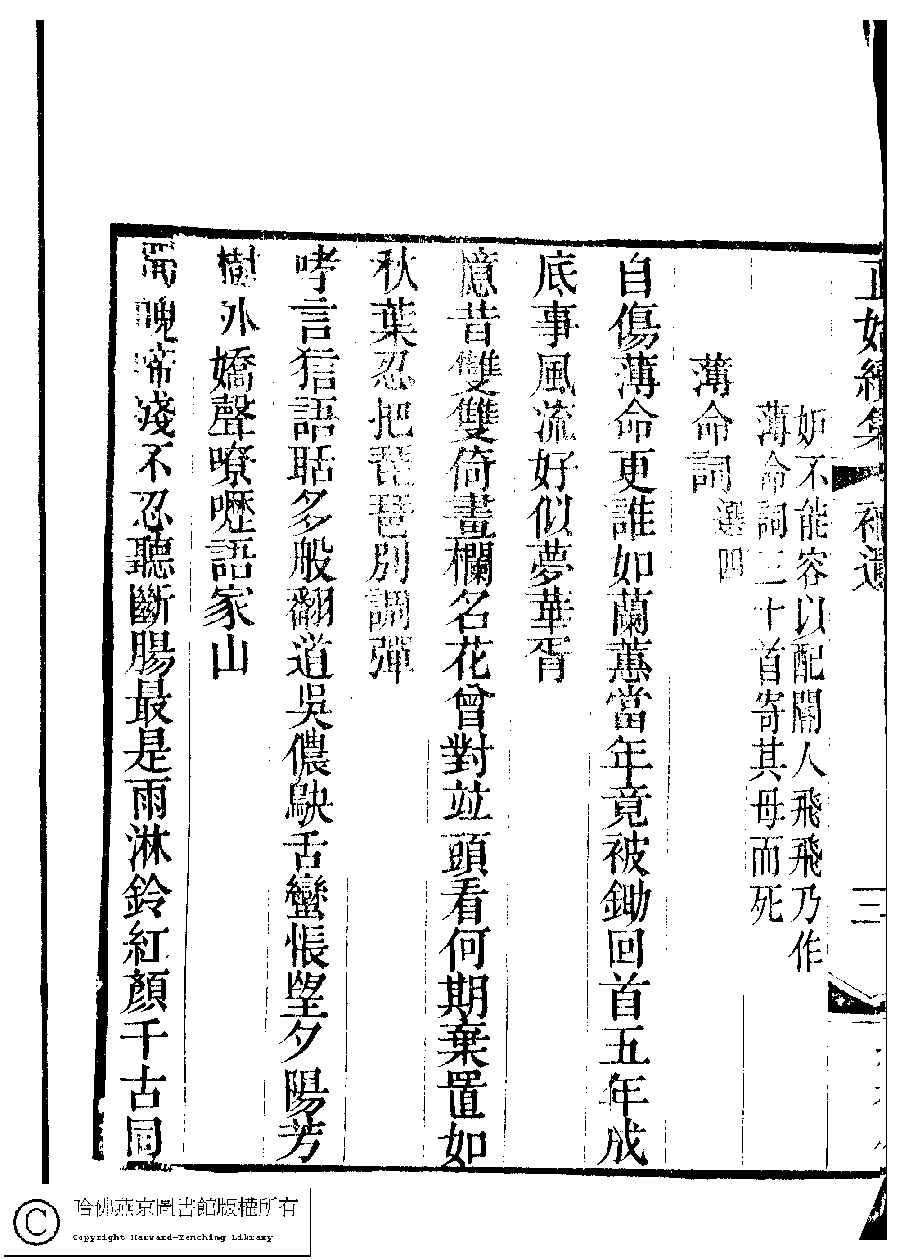 正始續集 補遺 三
妬不能容以配閽人飛飛乃作
薄命詞三十首寄其母而死
薄命詞選四
自傷薄命更誰如蘭蕙當年竟被鋤回首五年成
底事風流好似夢華胥
憶昔雙雙倚畫欄名花曾對竝頭看何期棄置如
秋葉忍把琵琶別調彈
哮言狺語聒多般翻道吳儂鴃舌蠻悵望夕陽芳
樹外嬌聲嘹嚦語家山
蜀魄啼殘不忍聽斷腸最是雨淋鈴紅顏千古同
哈佛燕京圖書館版權所有
Copyright Harvard-Yenching Library